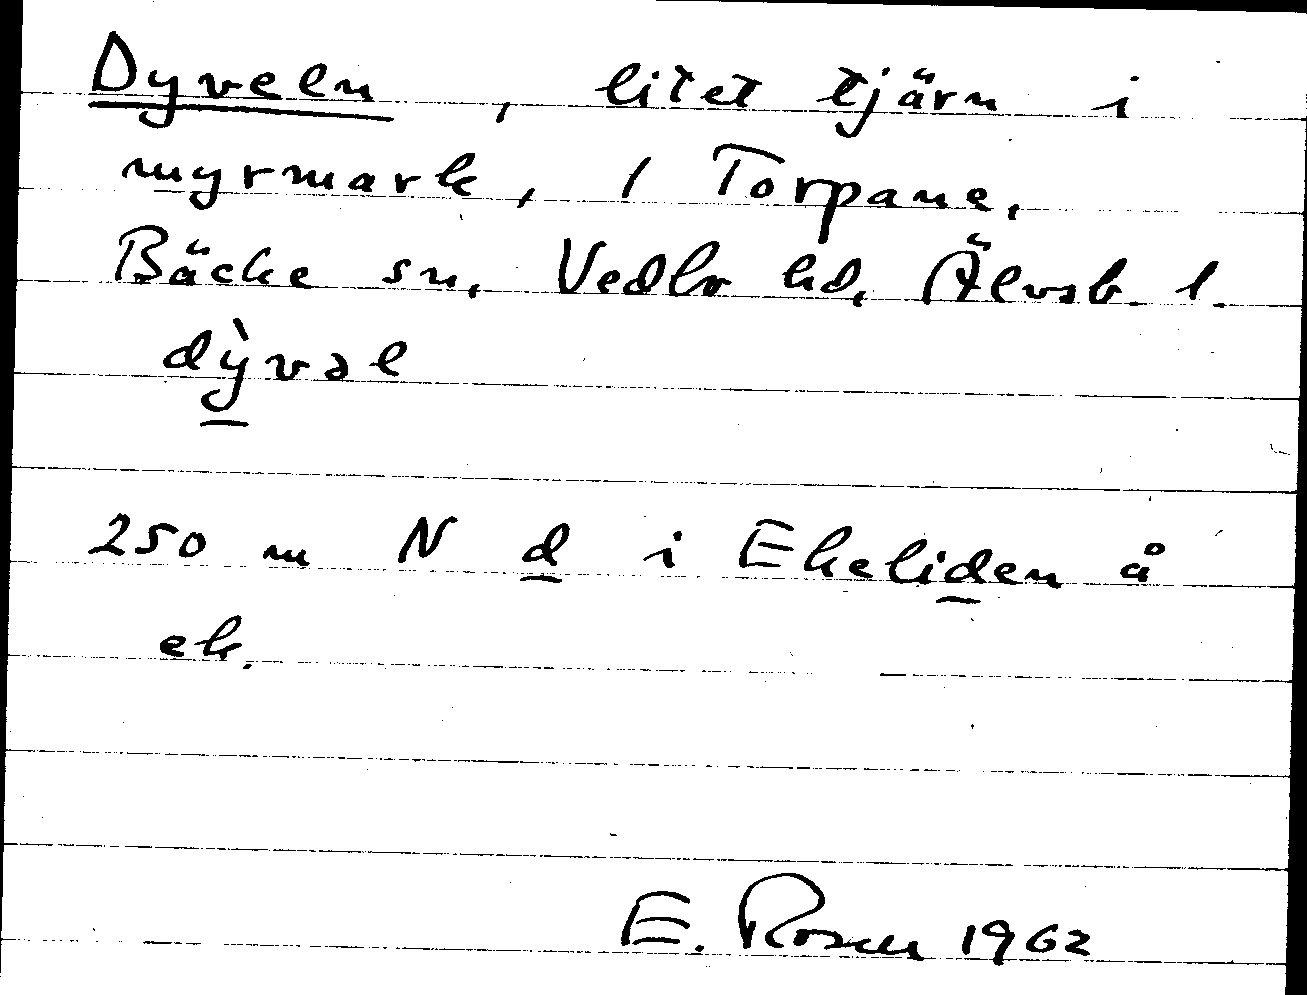 Dyveln, litet tjärn i
myrmark, 1 Torpane,
Bäcke sn, Vedbo hd, Älvsb. l.
dỳvəl
250 m N d i Ekeliden å
ek.
E. Rosell 1962